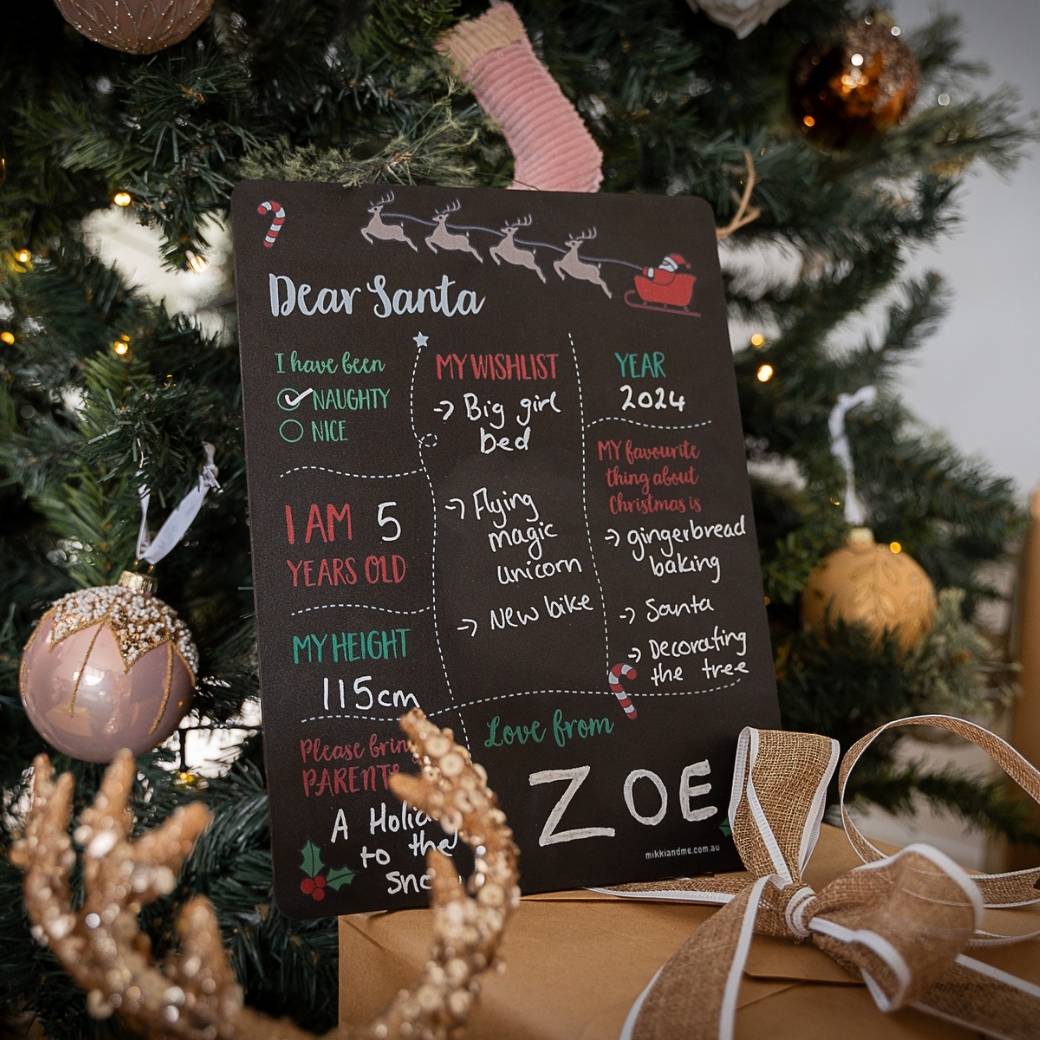 Dear Santa
I have been
NAUGHTY
NICE
I AM 5
YEARS OLD
MY HEIGHT
115cm
Please bring
PARENTS
A
to the
MY WISHLIST
-> Big girl
bed
-> Flying
magic
unicorn
-> New bike
YEAR
2024
MY favourite
thing about
Christmas is
-> gingerbread
baking
-> Santa
-> Decorating
the tree
Love from
ZOE
mikkiandme.com.au